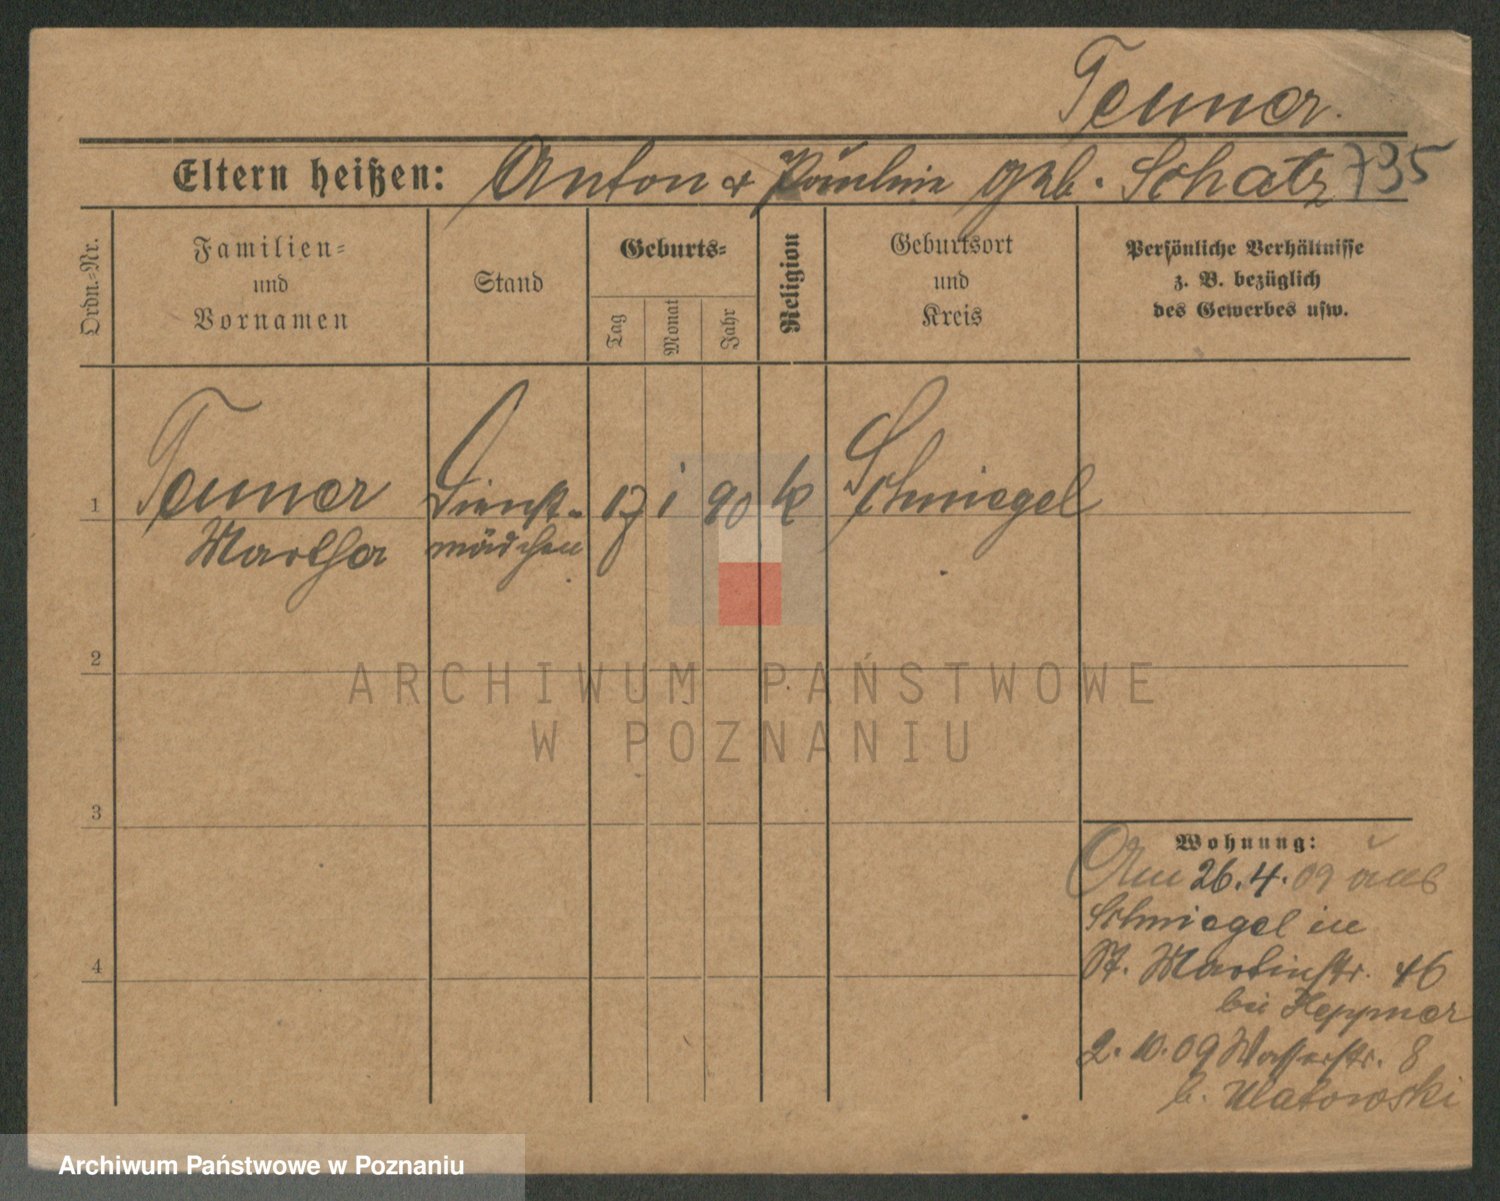 Teuner.
Eltern heißen: Anton & Pauline geb. Schatz 735
Ordn.-Nr.
Familien-
und
Vornamen
Stand
Geburts-
Tag
Monat
Jahr
Religion
Geburtsort
und
Kreis
Persönliche Verhältnisse
z. B. bezüglich
des Gewerbes usw.
1 Teuner Dienst- 17 1 90 k Schmiegel
Martha mädchen
2
3
4
Wohnung:
Am 26.4.09 aus
Schmiegel in
St. Martinstr. 46
bei Heppner
2.10.09 Wasserstr. 8
b.
ARCHIWUM PAŃSTWOWE
W POZNANIU
Archiwum Państwowe w Poznaniu